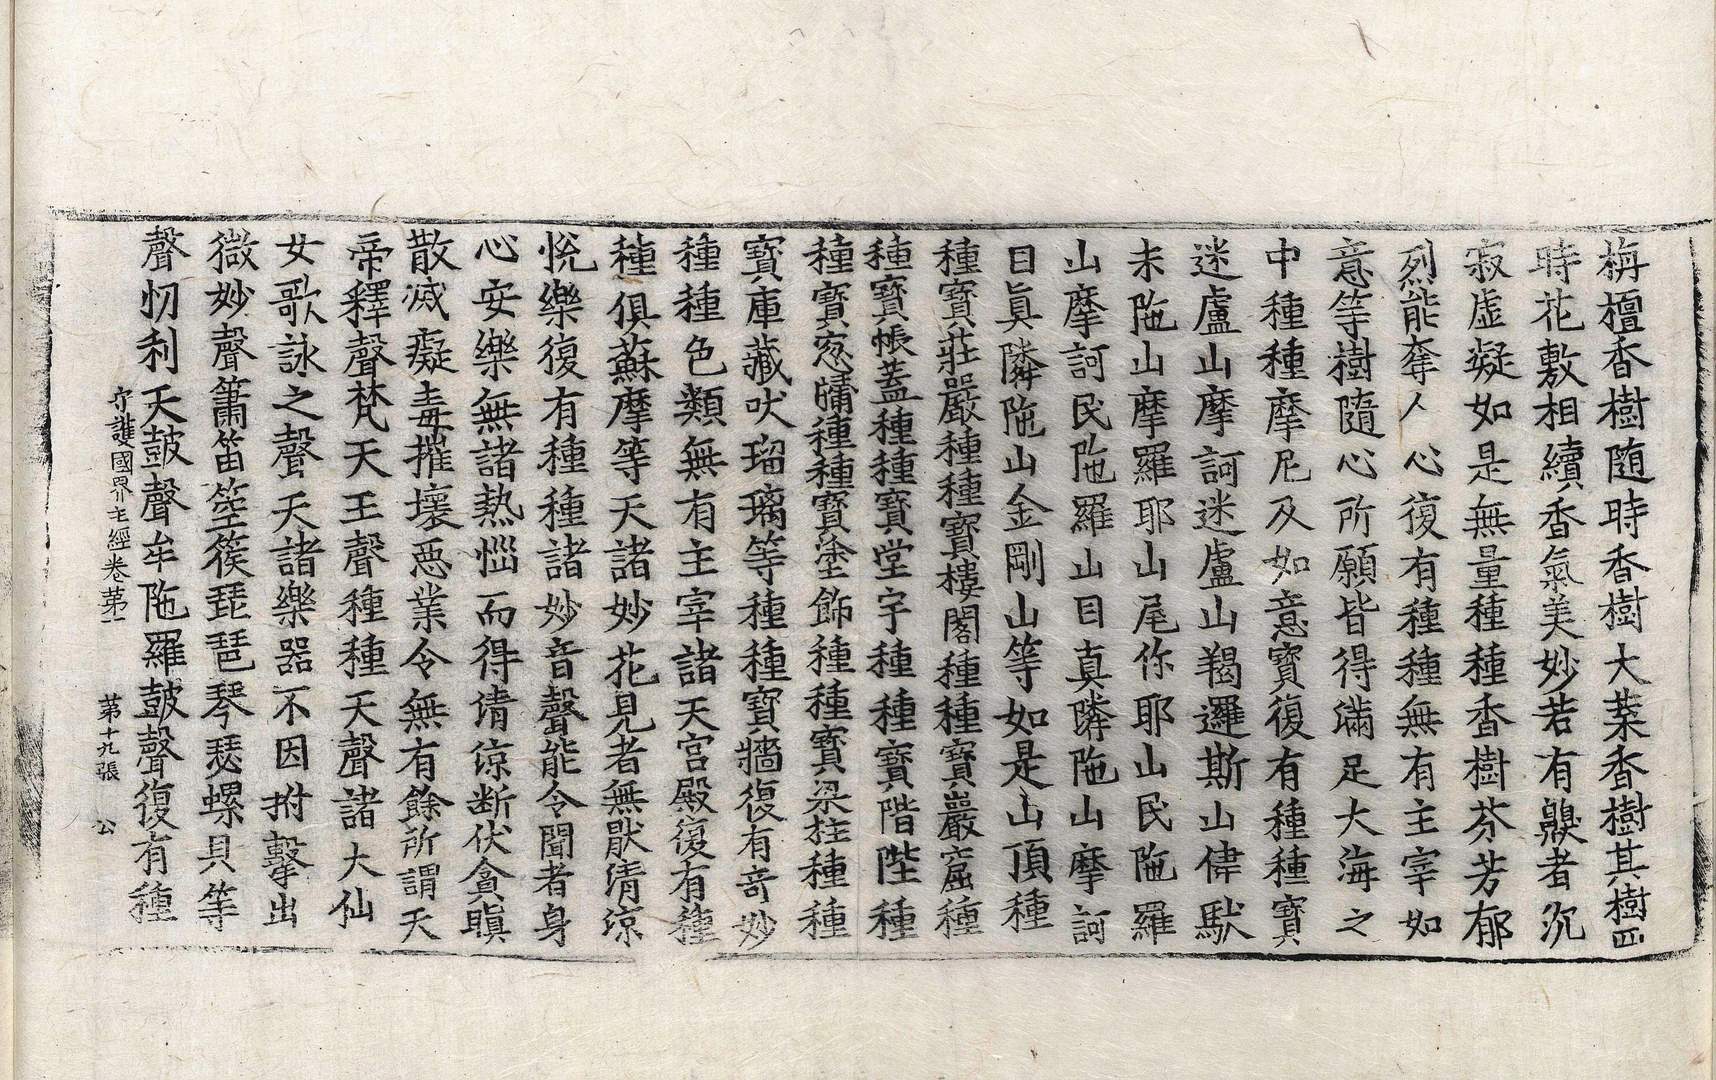 栴檀香樹随時香樹大葉香樹其樹四
時花敷相續香氣美妙若有齅者沉
寂虚凝如是無量種種香樹芬芳郁
烈能奪人心復有種種無有主宰如
意等樹隨心所願皆得滿足大海之
中種種摩尼及如意寶復有種種寶
迷盧山摩訶迷盧山羯邏斯山偉馱
未陁山摩羅耶山尾你耶山民陁羅
山摩訶民陁羅山目真隣陁山摩訶
目真隣陁山金剛山等如是山頂種
種寶莊嚴種種寶樓閣種種寶巖窟種
種寶帳蓋種種寶堂宇種種寶階陛種
種寶窓牖種種寶塗飾種種寶梁柱種種
寶庫藏吠瑠璃等種種寶牆復有奇妙
種種色類無有主宰諸天宮殿復有種
種俱蘇摩等天諸妙花見者無猒清涼
悅樂復有種種諸妙音聲能令聞者身
心安樂無諸熱惱而得清涼断伏貪瞋
散滅癡毒摧壞惡業令無有餘所謂天
帝釋聲梵天王聲種種天聲諸大仙
女歌詠之聲天諸樂器不因拊擊出
微妙聲簫笛箜篌琵琶琴瑟螺貝等
聲忉利天鼓聲牟陁羅鼓聲復有種
守護國界主經卷第一 第十九張 公